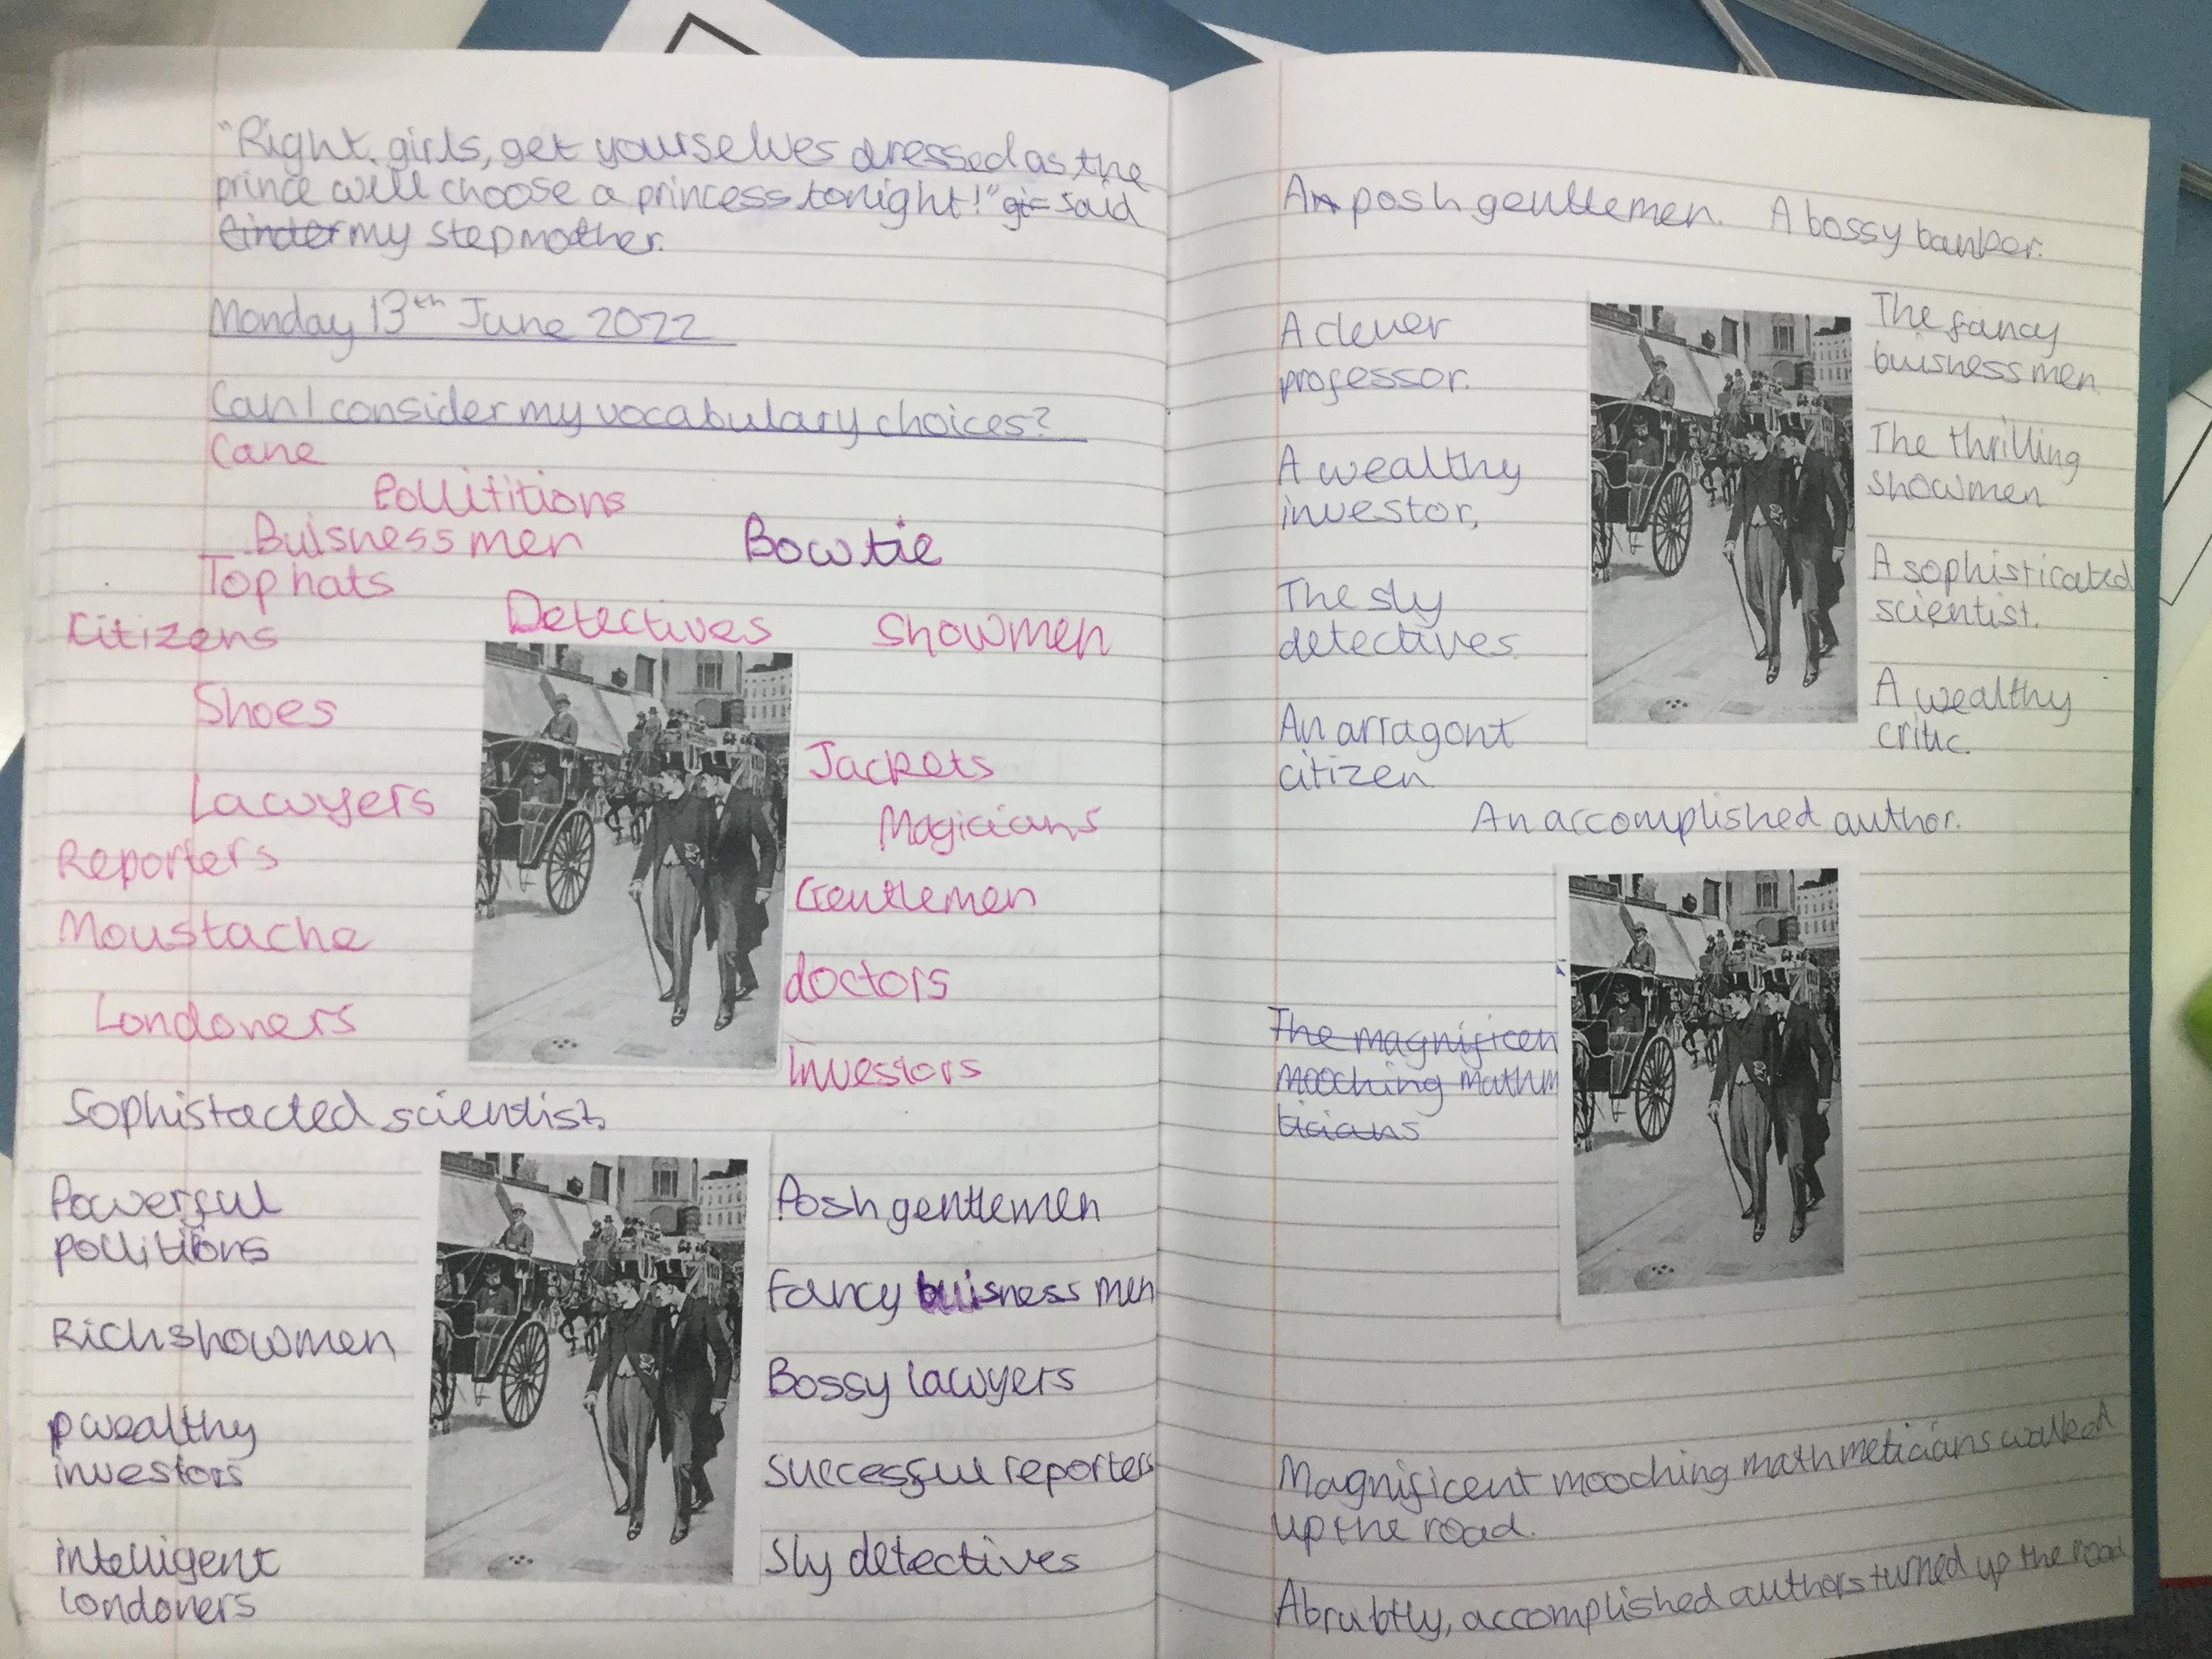 "Right, girls, get yourselves dressed as the
prince will choose a princess tonight!" said
Cinder my stepmother.
Monday 13th June 2022
Can I consider my vocabulary choices?
Cane
Pollititions
Buisness men
Bowtie
Top hats
Citizens
Detectives
Showmen
Shoes
Jackets
Lawyers
Magicians
Reporters
Gentlemen
Moustache
doctors
Londoners
Investors
Sophistacted scientists
Powerful
pollitions
Posh gentlemen
Fancy buisness men
Rich showmen
Bossy lawyers
wealthy
investors
successful reporters
intelligent
londoners
Sly detectives
An posh gentlemen. A bossy banker.
A clever
professor.
The fancy
buisness men
A wealthy
investor,
The thrilling
showmen
The sly
detectives
A sophisticated
scientist.
An arragont
citizen
A wealthy
critic.
An accomplished author.
The magnificen
mooching mathm
ticians
Magnificent mooching mathmeticians walked
up the road.
Abrubtly, accomplished authors turned up the road